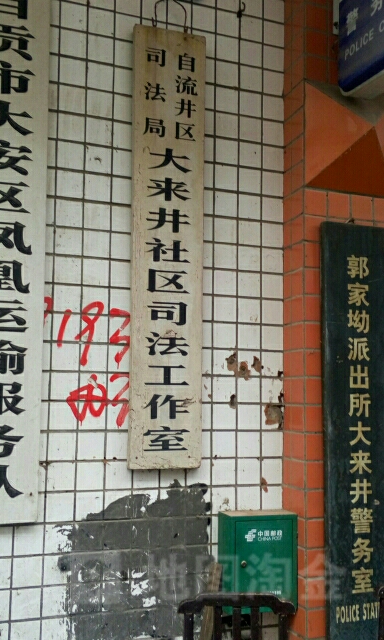 自贡市大安区凤凰运输服务队
自流井区
司法局
大来井社区司法工作室
警务
POLICE
郭家坳派出所大来井警务室
POLICE STAT
193
中国邮政
CHINA POST
地图淘金